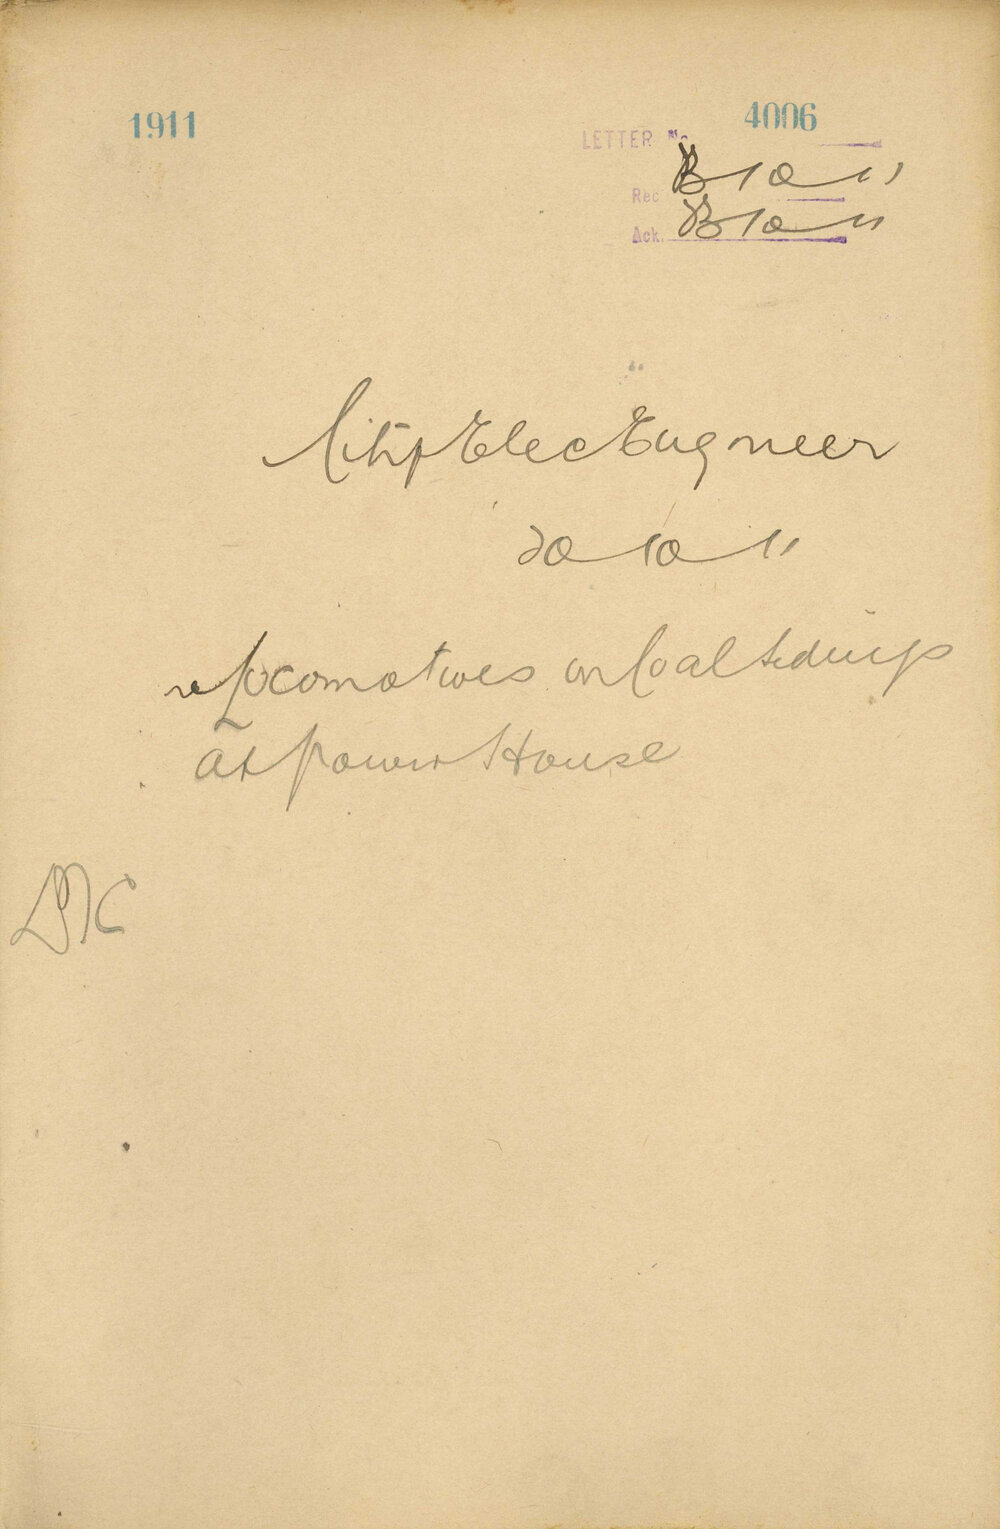 1911
LETTER No. 4006
Rec 10 11
Ack. 10 11
City Elec Engineer
10 11
re Locomotives on Coal Sidings
At Power House